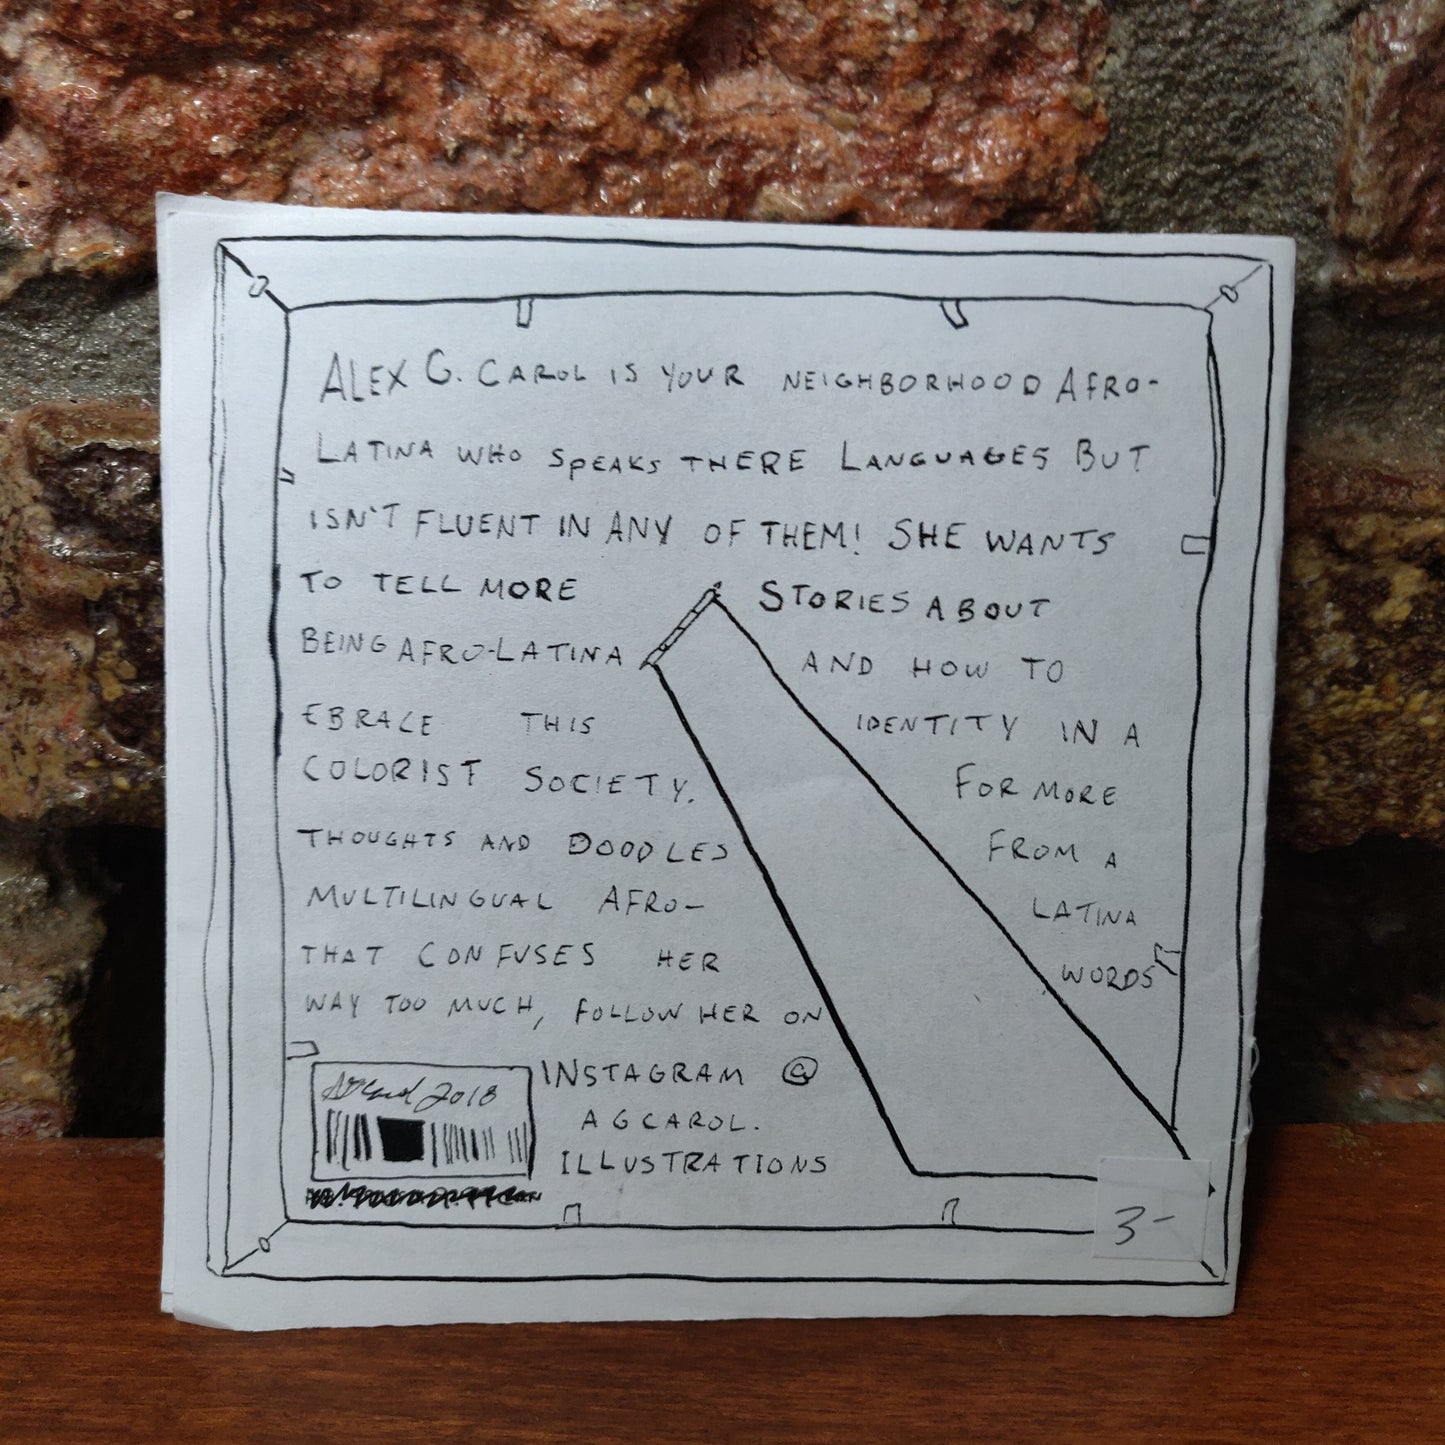 ALEX G. CAROL IS YOUR NEIGHBORHOOD AFRO-
LATINA WHO SPEAKS THERE LANGUAGES BUT
ISN'T FLUENT IN ANY OF THEM! SHE WANTS
TO TELL MORE STORIES ABOUT
BEING AFRO-LATINA AND HOW TO
EBRACE THIS IDENTITY IN A
COLORIST SOCIETY. FOR MORE
THOUGHTS AND DOODLES FROM A
MULTILINGUAL AFRO- LATINA
THAT CONFUSES HER WORDS
WAY TOO MUCH, FOLLOW HER ON
INSTAGRAM @
AGCAROL.
ILLUSTRATIONS
2018
3-